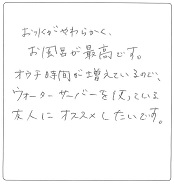 お水がやわらかく、
お風呂が最高です。
オウチ時間が増えているので、
ウォーターサーバーを使っている
友人にオススメしたいです。